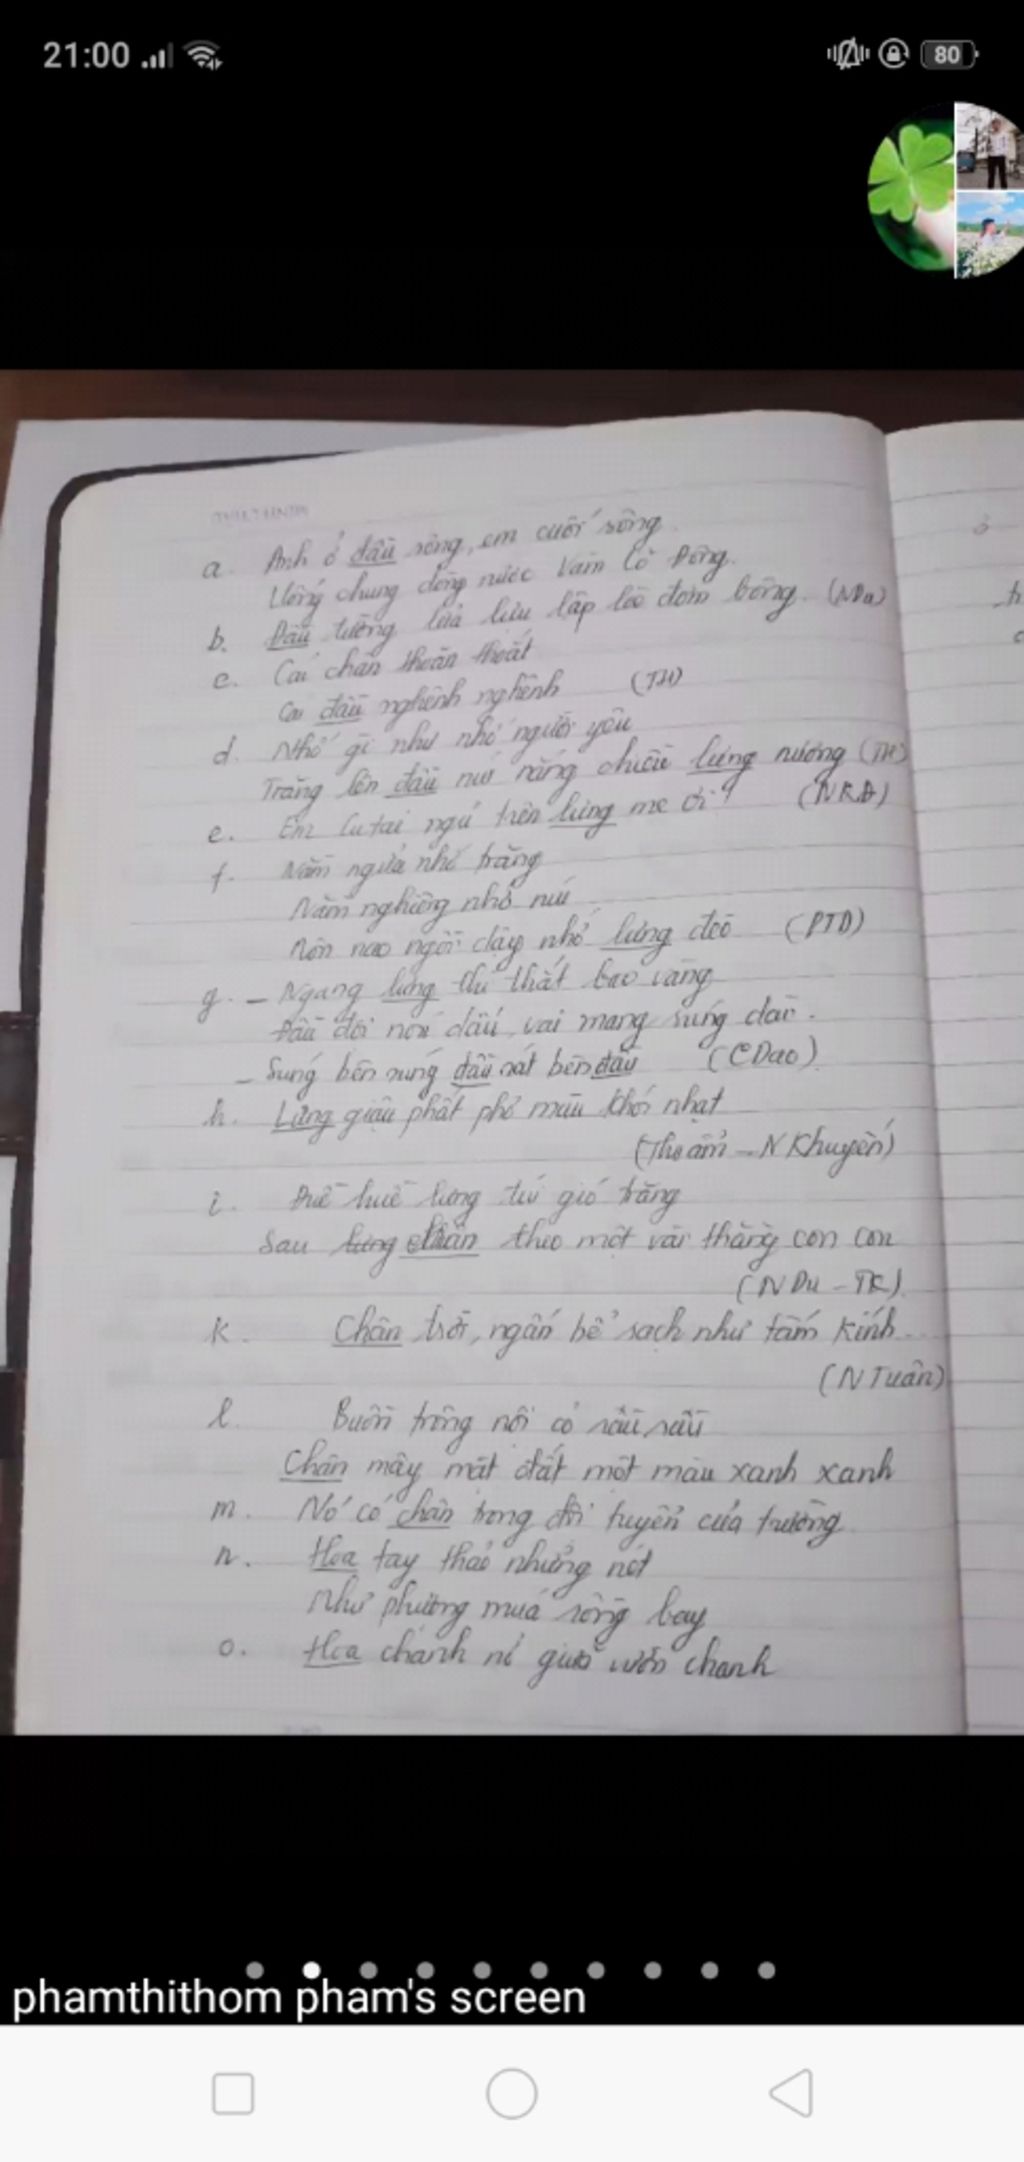 21:00
80
a. Anh ở đầu sông, em cuối sông
Uống chung dòng nước Vàm Cỏ Đông.
b. Đầu tường lửa lựu lập loè đơm bông. (NDu)
c. Cái chân thoăn thoắt
Cái đầu nghênh nghênh (TH)
d. Nhớ gì như nhớ người yêu
Trăng lên đầu núi nắng chiều lưng nương (TH)
e. Em Cu tai ngủ trên lưng mẹ ơi? (NKĐ)
f. Nằm ngửa nhớ trăng
Nằm nghiêng nhớ núi
Nôn nao ngồi dậy nhớ lưng đèo (PTD)
g. - Ngang lưng thì thắt bao vàng
Đầu đội nón dấu, vai mang súng dài.
- Súng bên súng đầu sát bên đầu (CDao)
h. Lưng giậu phất phơ màu khói nhạt
(Thu ẩm - N Khuyến)
i. Đuề huề lưng túi gió trăng
Sau lưng chân theo một vài thằng con con
(N Du - TK)
k. Chân trời, ngấn bể sạch như tấm kính...
(N Tuân)
l. Buồn trông nội cỏ rầu rầu
Chân mây mặt đất một màu xanh xanh
m. Nó có chân trong đội tuyển của trường
n. Hoa tay thảo những nét
Như phượng múa rồng bay
o. Hoa chanh nở giữa vườn chanh
phamthithom pham's screen